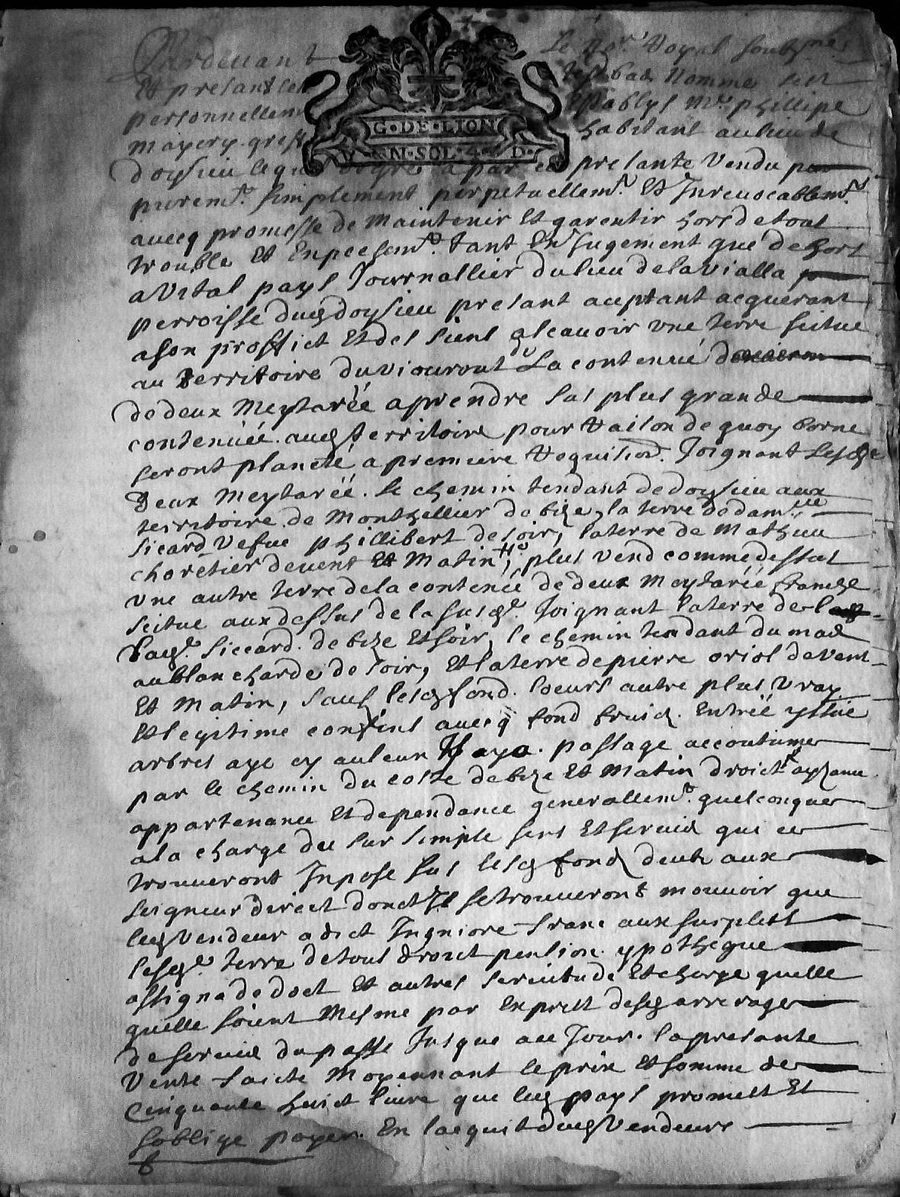 Pardevant le no.re Royal soubsigné
Et presant les tesd bas nommé sest
personnellem estably Mre phillipe
mayery greff habitant au lieu de
G·DE·LION
N·SOL·4·D·
doysieu lequel de gre a par ces presante vendu
purem.t simplement perpetuellem.t Et Inrevocablem.t
avecq promesse de maintenir Et garentir hors de tout
trouble Et Enpeesem.t tant En Jugement que dehors
a Vital pays Journallier du lieu de la Vialla
perroisse dud doysieu presant aceptant acquerant
a son proffict Et des siens ascavoir vne terre scitue
au territoire du viouront de La contenue
de deux Meytaréé a prendre sus plus grande
contenuéé aud territoire pour Raison de quoy borne
seront planté a premiere Requision. Joignant lesd
deux Meytaréé. le chemin tendant de doysieu aux
territoire de Monthellier de bize, la terre de dam.lle
Sicard vefue phillibert de soir, la terre de Mathieu
choretier de vent Et Matin, plus vend comme dessus
vne autre terre de la contenéé de deux Meytaréé
scitue au dessus de la susd. Joignant la terre de
lad. Siccard de bize Et soir, le chemin tendant du mas
au blanchard de soir, Et la terre de pierre oriol de vent
Et Matin, sauf lesd fond. leurs autre plus vray
Et legitime confins avecq fond fruid. Entréé yssue
arbres aye cy auleun Haya. passage accoutume
par le chemin du coste de bize Et Matin droict
appartenance Et dependance generallem.t quelconque
a la charge du sur simple sens Et servis qui ce
trouveront Inpose sus lesd fond deub aux
seigneur direct donct Il se trouveront mouvoir que
led vendeur a dict Ingniore franc aux surplus
lesd. terre de tout droict pension ypotheque
assignade doct Et autres servitude Et charge quelle
quelle soient Mesme par Expres desd arrerage
de servis du passe Jusque au Jour. la presante
vente faicte Moyennant le prix Et somme de
Cinquante huict livre que led pays promect Et
soblige payer. En lacquit dud vendeur